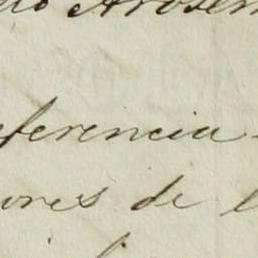 do Arosem
eferencia
ores de l